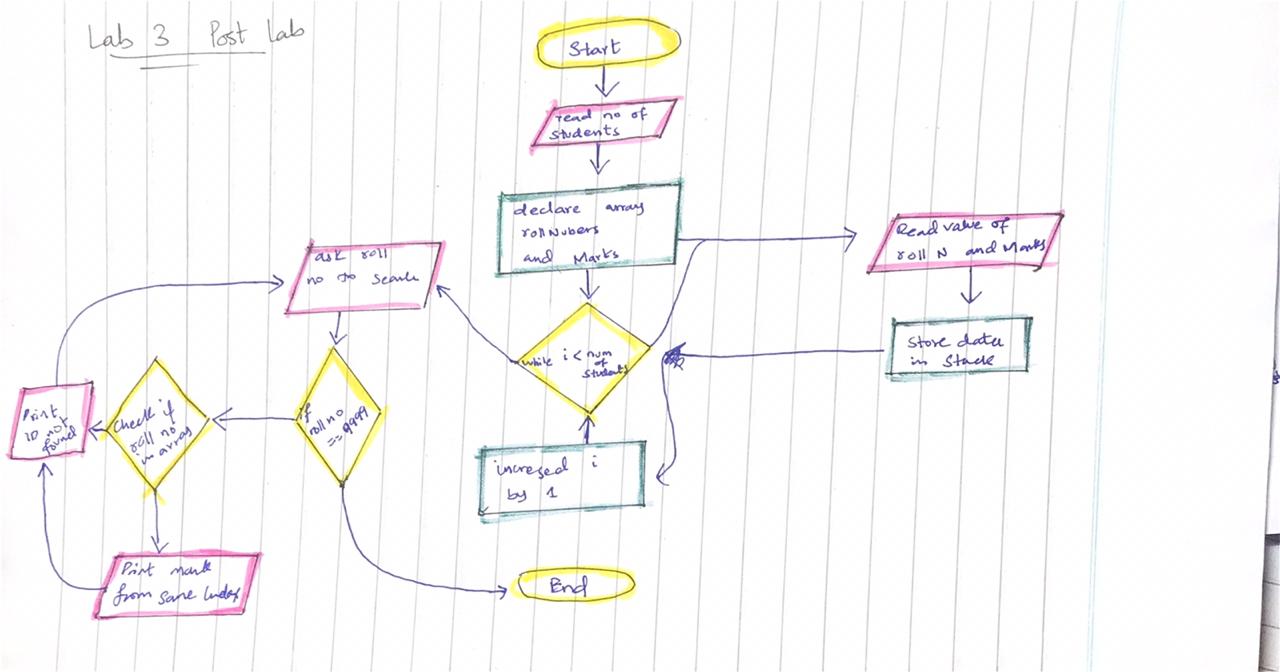 Lab 3 Post Lab
Start
read no of
students
declare array
rollNubers
and Marks
Read value of
roll N and Marks
store data
in Stack
while i < num
of
students
incresed i
by 1
ask roll
no to search
if
roll no
== 9999
check if
roll no
in array
Print
ID not
found
Print mark
from same Index
End